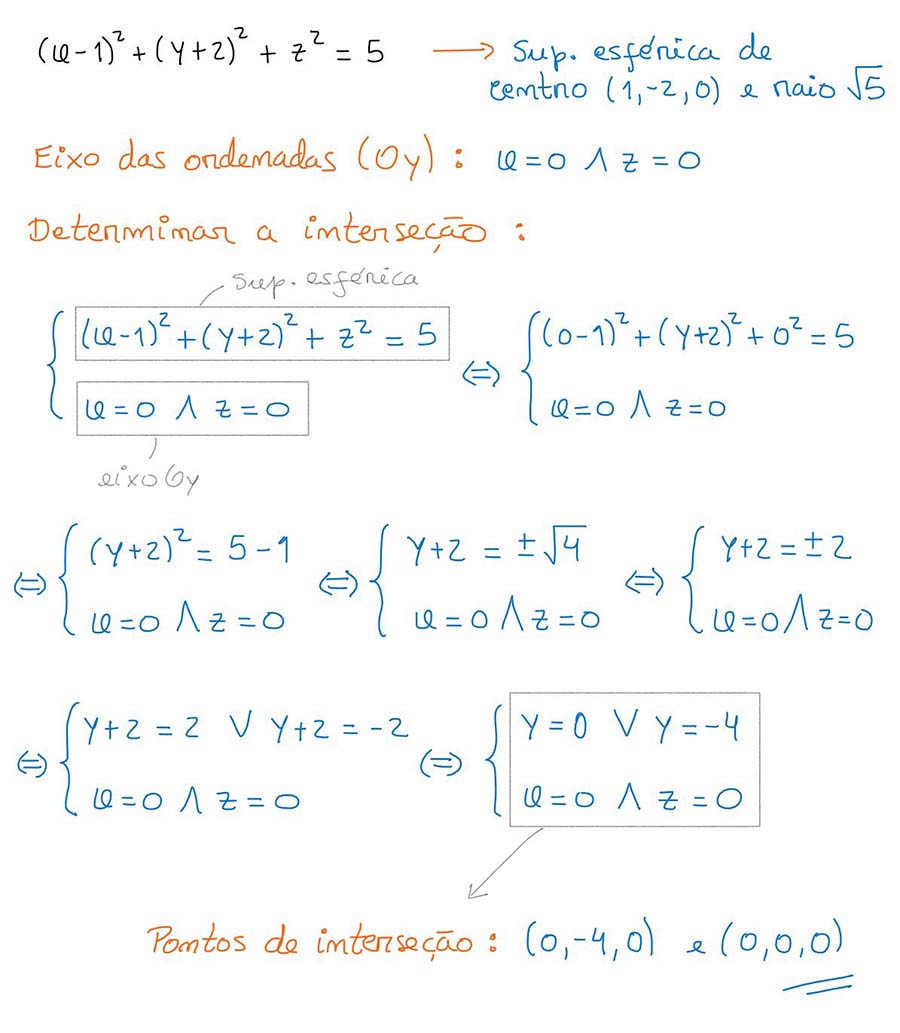 (x-1)² + (y+2)² + z² = 5 → Sup. esférica de
centro (1,-2,0) e raio √5
Eixo das ordenadas (Oy) : x=0 ∧ z=0
Determinar a interseção :
sup. esférica
{ (x-1)² + (y+2)² + z² = 5 ⇔ { (0-1)² + (y+2)² + 0² = 5
x=0 ∧ z=0 x=0 ∧ z=0
eixo Oy
⇔ { (y+2)² = 5-1 ⇔ { y+2 = ±√4 ⇔ { y+2 = ±2
x=0 ∧ z=0 x=0 ∧ z=0 x=0 ∧ z=0
⇔ { y+2 = 2 ∨ y+2 = -2 ⇔ { y=0 ∨ y=-4
x=0 ∧ z=0 x=0 ∧ z=0
Pontos de interseção : (0,-4,0) e (0,0,0)